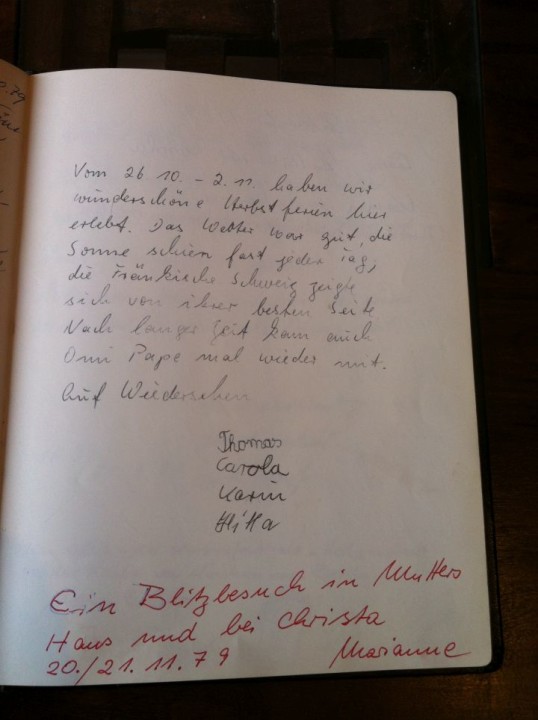 0.79
Vom 26 10. - 2. 11. haben wir
wunderschöne Herbstferien hier
erlebt. Das Wetter war gut, die
Sonne schien fast jeder Tag,
die Fränkische Schweiz zeigte
sich von ihrer besten Seite
Nach langer Zeit kam auch
Omi Pape mal wieder mit.
Auf Wiedersehen
Thomas
Carola
Karin
Ein Blitzbesuch in Mutters
Haus und bei Christa
20./21. 11. 79 Marianne